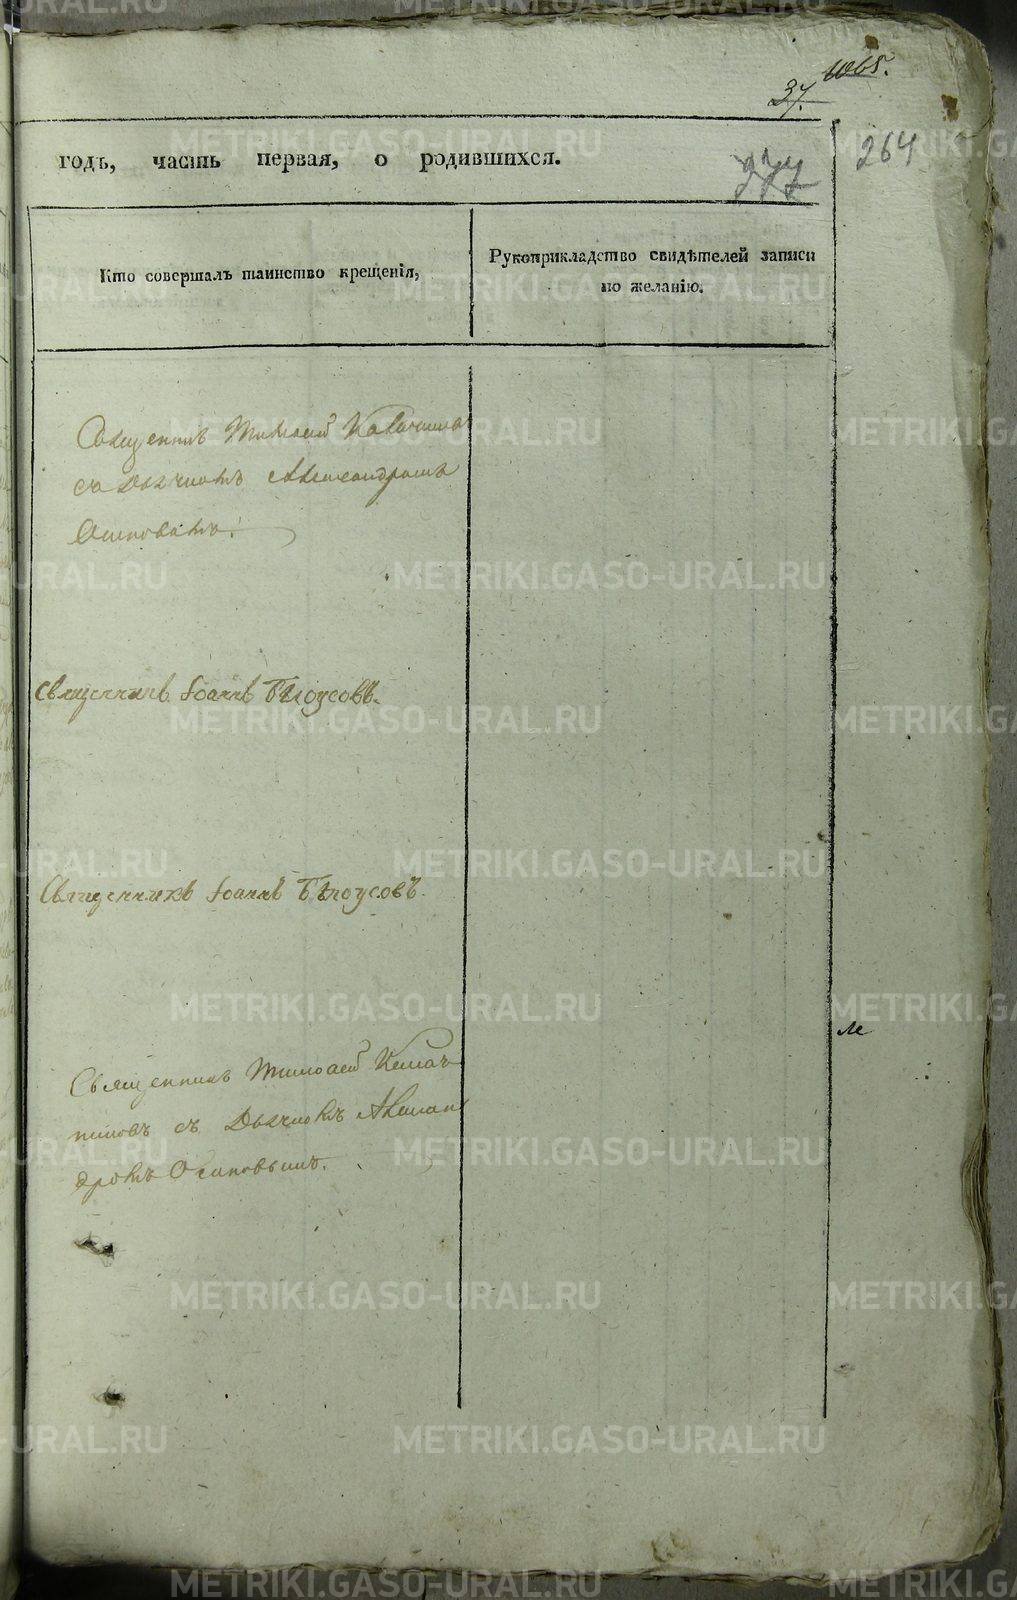 1065.
37.
277
264
годъ, часть первая, о родившихся.
Кто совершалъ таинство крещенія,
Рукоприкладство свидѣтелей записи
по желанію.
Священникъ Тимоѳей
съ Дьячкомъ Александромъ
Осиповымъ.
Священникъ Іоаннъ Бѣлоусовъ.
Священникъ Іоаннъ Бѣлоусовъ.
Священникъ Тимоѳей
съ Дьячкомъ Алексан
дромъ Осиповымъ.
METRIKI.GASO-URAL.RU